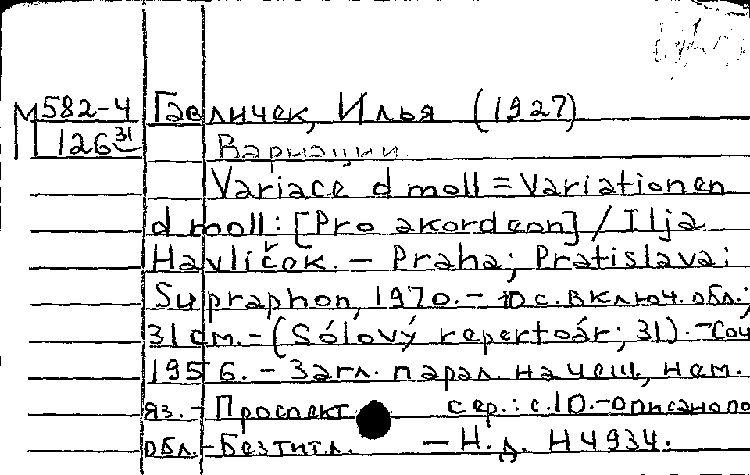 М 582-4 Гавличек, Илья (1927)
126 31 Вариации
Variace d moll = Variationen
d moll: [Pro akordeon] / Ilja
Havlíček. – Praha; Pratislava:
Supraphon, 1970. – 10 с. включ. обл.;
31 см. – (Sólový repertoár; 31). – Соч.
1956. – Загл. парал. на чеш., нем.
яз. – Проспект сер.: с. 10. – Описано по
обл. – Без тит. л. – Н. д. H 4934.